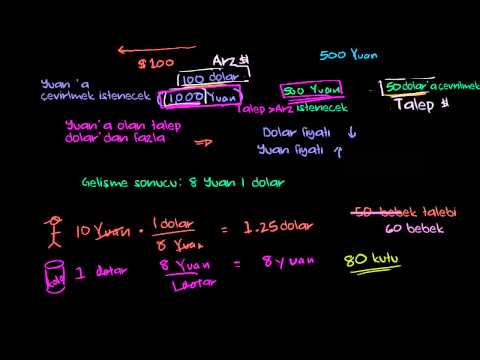 $100
Arz $
500 Yuan
Yuan'a çevirilmek istenecek
100 dolar
1000 Yuan
500 Yuan
istenecek
50 dolar'a çevirilmek
Talep > Arz
Talep $
Yuan'a olan talep
dolar'dan fazla
⇒
Dolar fiyatı ↓
Yuan fiyatı ↑
Gelişme sonucu: 8 Yuan 1 dolar
10 Yuan · 1 dolar / 8 Yuan = 1.25 dolar
50 bebek talebi
60 bebek
kola
1 dolar 8 Yuan / 1 dolar = 8 yuan
80 kutu